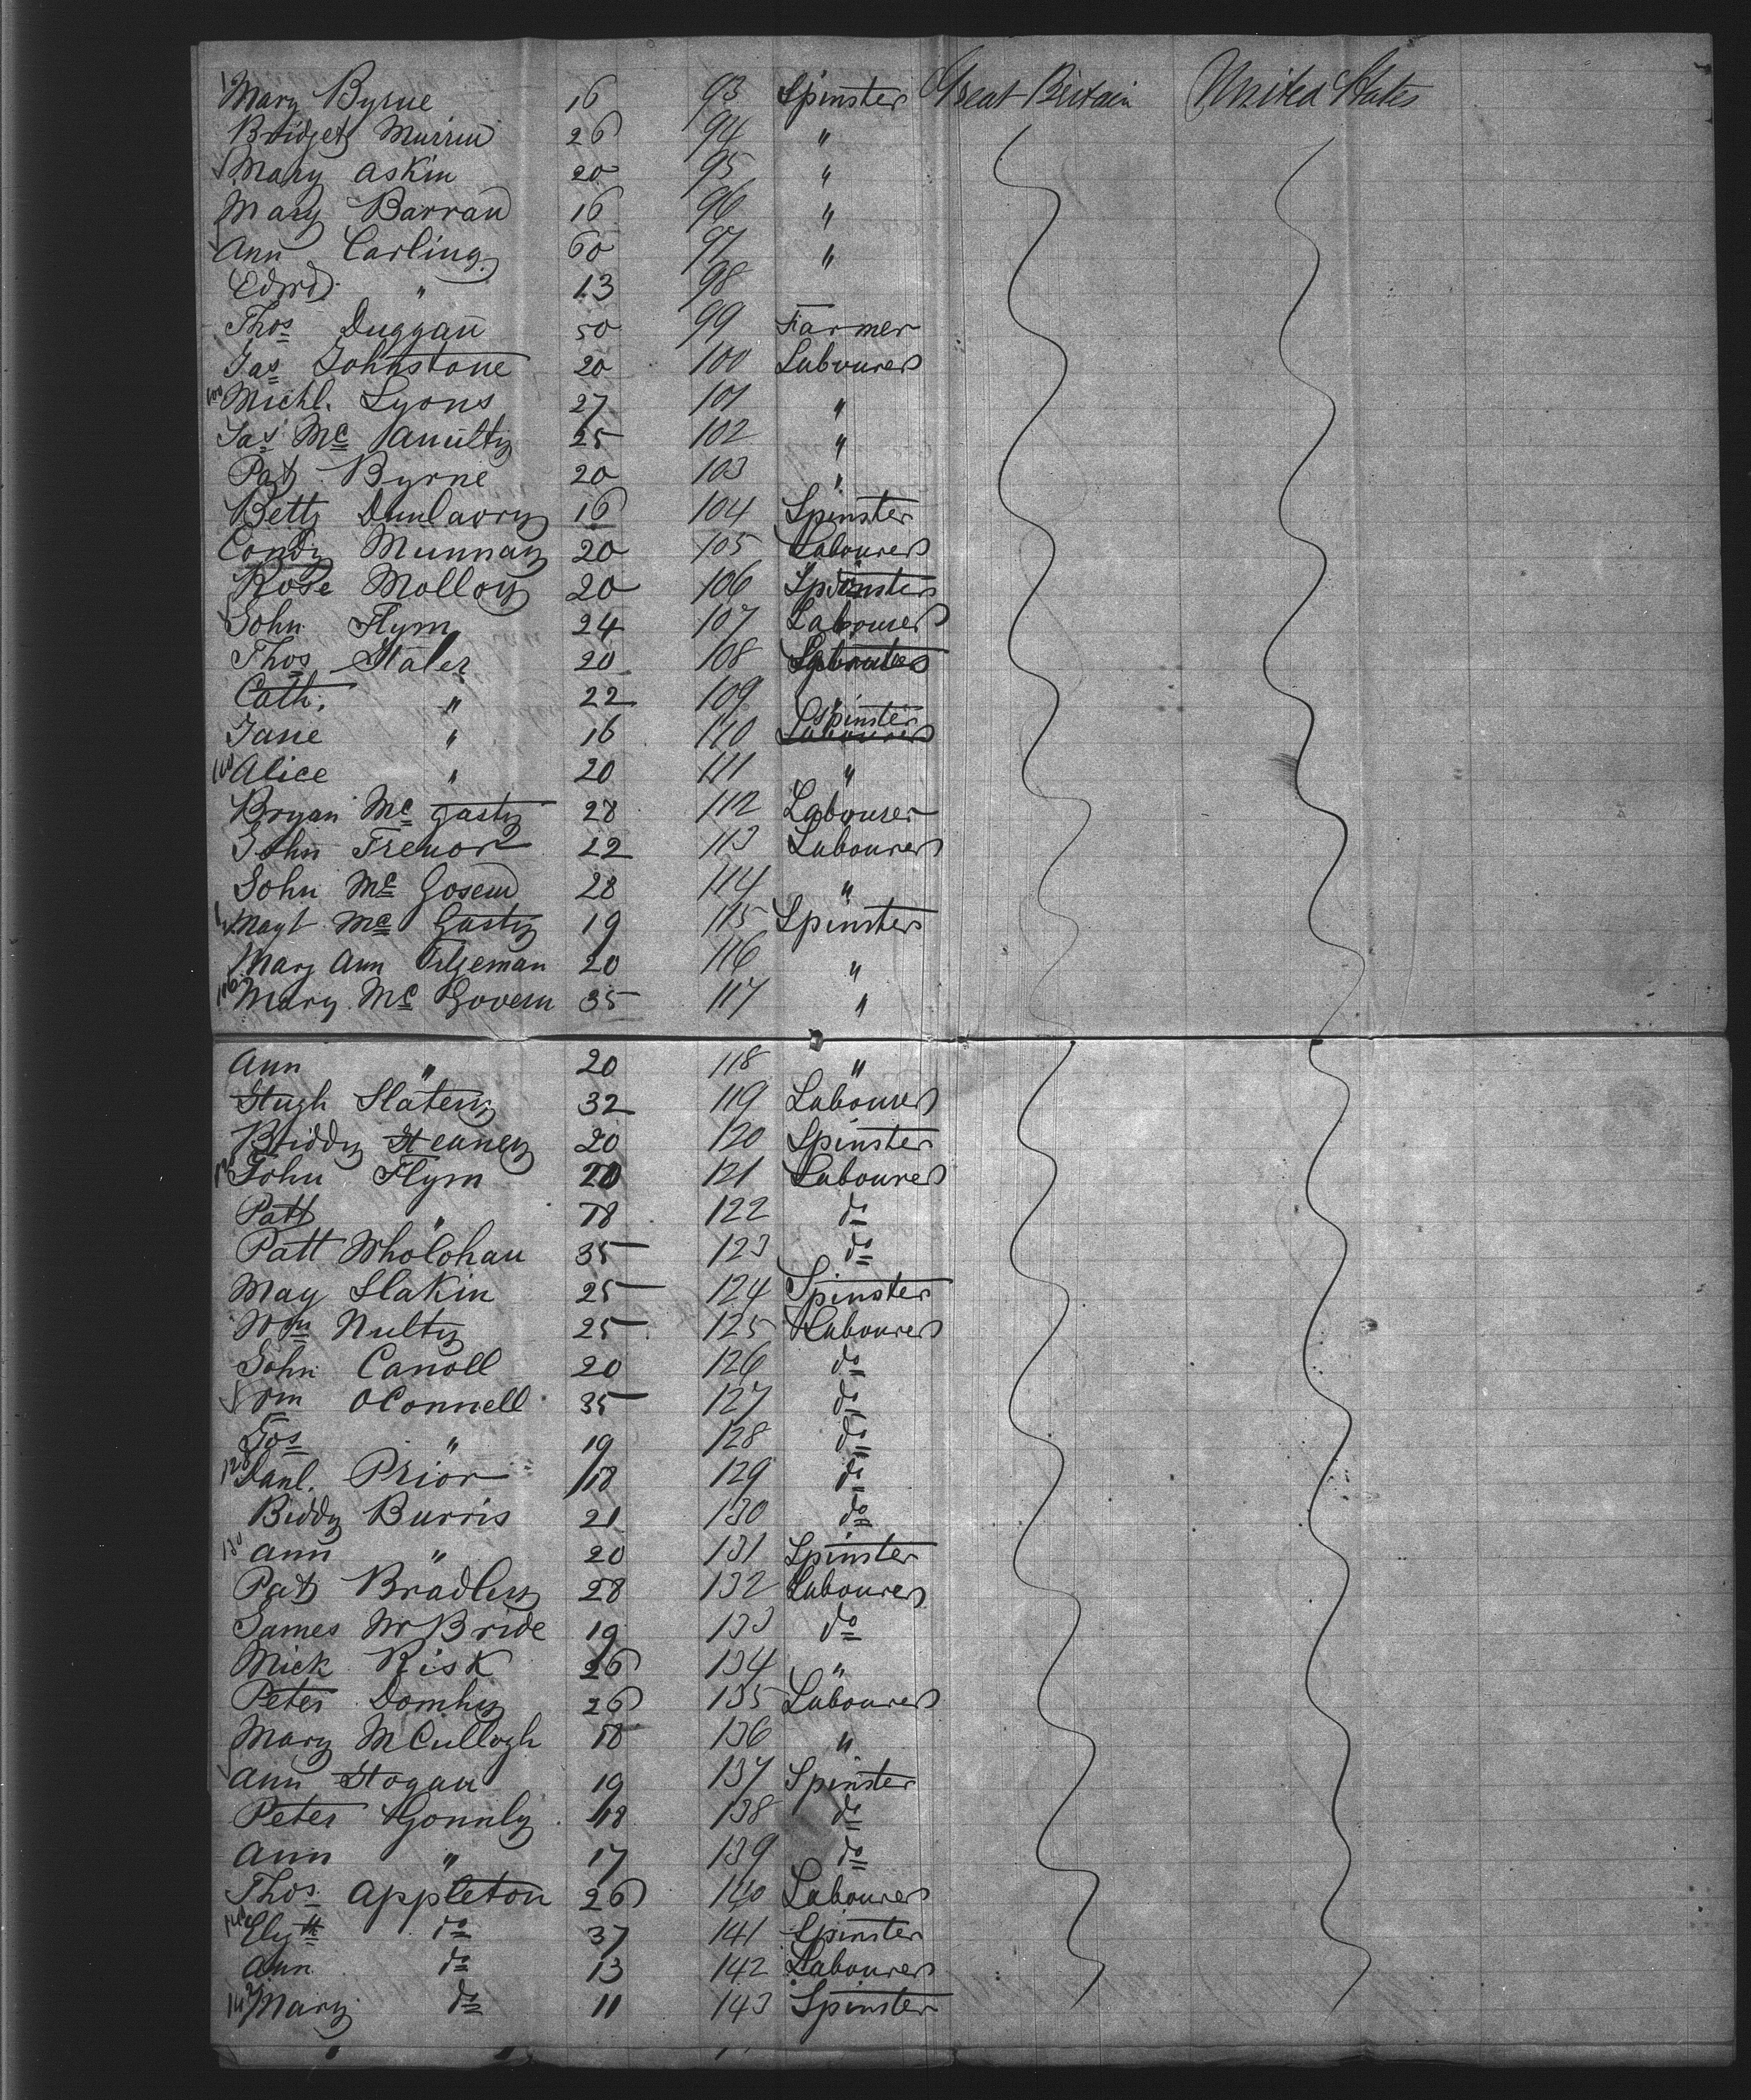 Mary Byrne 16 93 Spinster Great Britain United States
Bridget Murrin 26 94 "
Mary Askin 20 95 "
Mary Barran 16 96 "
Ann Carling 60 97 "
Edwd " 13 98
Thos Duggan 50 99 Farmer
Jas Johnstone 20 100 Labourer
Michl. Lyons 27 101 "
Jas Mc Anulty 25 102 "
Pat Byrne 20 103 "
Betty Dunlavry 16 104 Spinster
Condy Munnay 20 105 Labourer
Rose Molloy 20 106 Spinster
John Flym 24 107 Labourer
Thos Slater 20 108
Cath. " 22 109 "
Spinster
Jane " 16 110 Labourer
Alice " 20 111 "
Bryan Mc Gasty 28 112 Labourer
John Trenor 22 113 Labourer
John Mc Gosem 28 114 "
Magt Mc Gasty 19 115 Spinster
Mary Ann 20 116 "
Mary Mc Govern 35 117 "
Ann " 20 118 "
Hugh Slatery 32 119 Labourer
Biddy Heaney 20 120 Spinster
John Flym 20 121 Labourer
Patt " 18 122 do
Patt Wholohan 35 123 do
May Slakin 25 124 Spinster
Wm Nulty 25 125 Labourer
John Caroll 20 126 do
Wm OConnell 35 127 do
Jos " 19 128 do
128 Danl. Prior 18 129 do
Biddy Burris 21 130 do
130 Ann " 20 131 Spinster
Pat Bradley 28 132 Labourer
James McBride 19 133 do
Mick Risk 26 134 "
Peter Domhy 26 135 Labourer
Mary McCullogh 18 136 "
Ann Hogan 19 137 Spinster
Peter Gonnly 18 138 do
Ann " 17 139 do
Thos Appleton 26 140 Labourer
140 Elyth do 37 141 Spinster
Ann do 13 142 Labourer
142 Mary do 11 143 Spinster